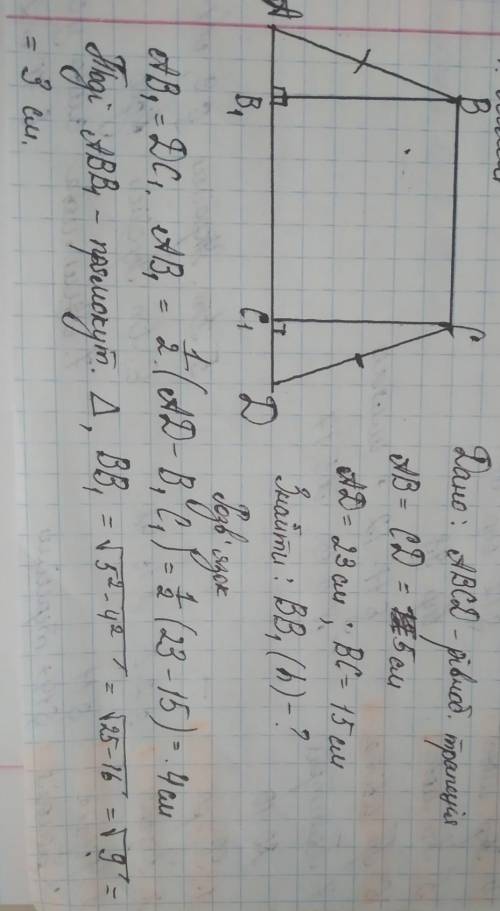 A
B
B₁
C₁
C
D
Дано: ABCD - рівноб. трапеція
AB = CD = 5 см
AD = 23 см; BC = 15 см
Знайти: BB₁ (h) - ?
Розв'язок
AB₁ = DC₁. AB₁ = 1/2 · (AD - B₁C₁) = 1/2 (23 - 15) = 4 см
Тоді ABB₁ - прямокут. Δ, BB₁ = √5² - 4² = √25-16 = √9 =
= 3 см.